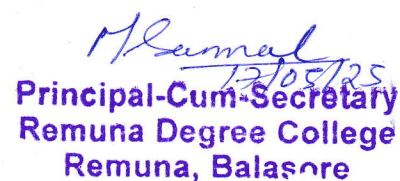 17/05/25
Principal-Cum-Secretary
Remuna Degree College
Remuna, Balasore